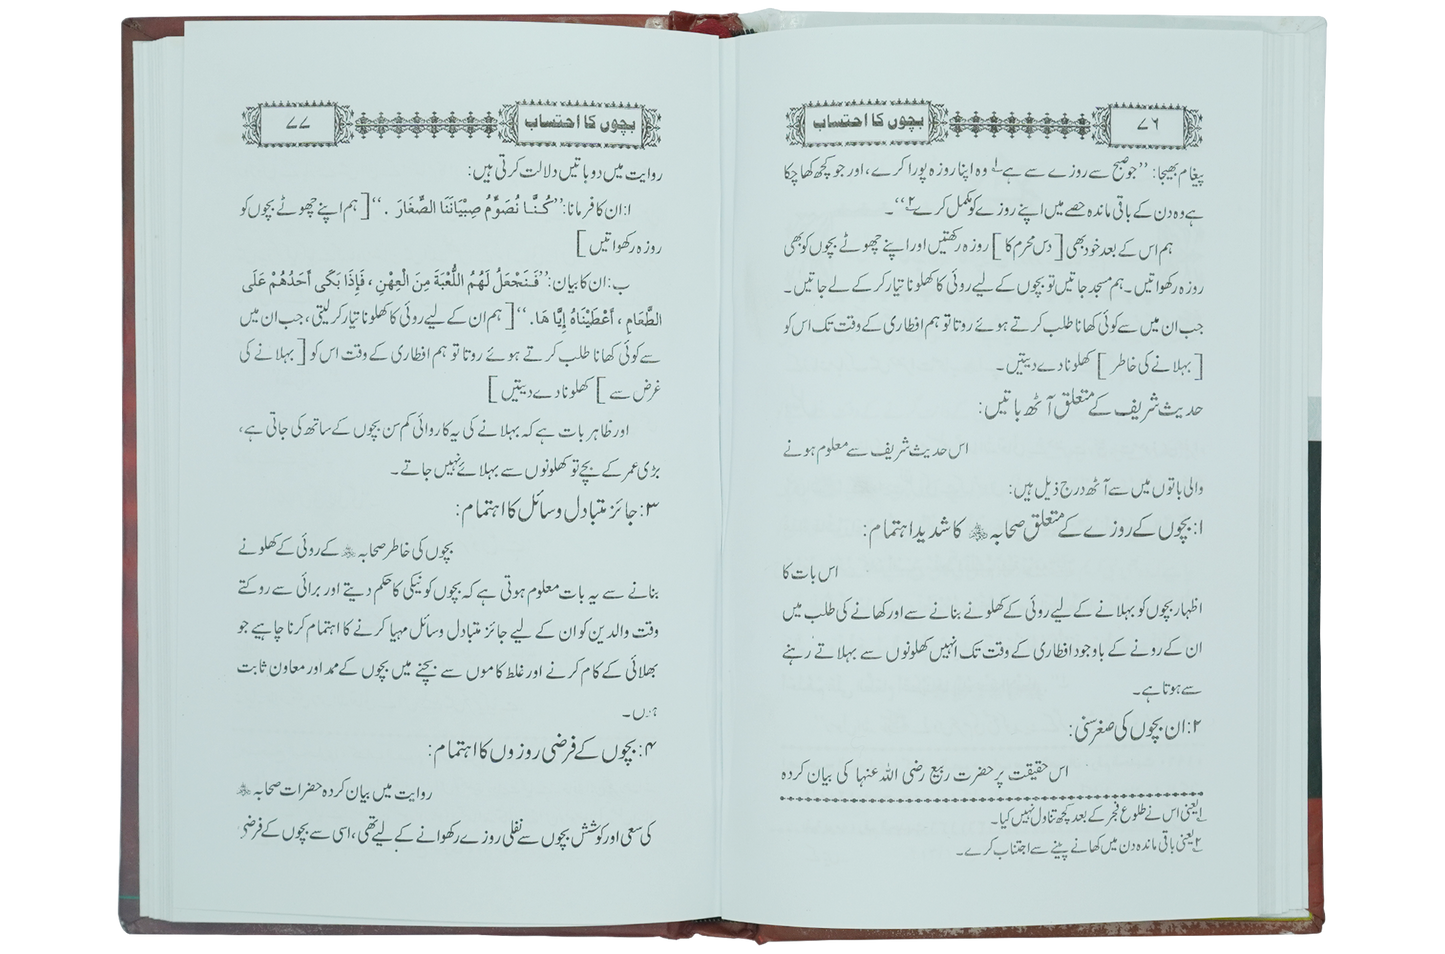 بچوں کا احتساب
۷۶
پیغام بھیجا: ’’جو صبح سے روزے سے ہے۱ وہ اپنا روزہ پورا کرے، اور جو کچھ کھا چکا
ہے وہ دن کے باقی ماندہ حصے میں اپنے روزے کو مکمل کرے۲‘‘۔
ہم اس کے بعد خود بھی [دس محرم کا] روزہ رکھتیں اور اپنے چھوٹے بچوں کو بھی
روزہ رکھواتیں۔ ہم مسجد جاتیں تو بچوں کے لیے روئی کا کھلونا تیار کر کے لے جاتیں۔
جب ان میں سے کوئی کھانا طلب کرتے ہوئے روتا تو ہم افطاری کے وقت تک اس کو
[بہلانے کی خاطر] کھلونا دے دیتیں۔
حدیث شریف کے متعلق آٹھ باتیں:
اس حدیث شریف سے معلوم ہونے
والی باتوں میں سے آٹھ درج ذیل ہیں:
۱: بچوں کے روزے کے متعلق صحابہ رضی اللہ عنہم کا شدید اہتمام:
اس بات کا
اظہار بچوں کو بہلانے کے لیے روئی کے کھلونے بنانے سے اور کھانے کی طلب میں
ان کے رونے کے باوجود افطاری کے وقت تک انہیں کھلونوں سے بہلاتے رہنے
سے ہوتا ہے۔
۲: ان بچوں کی صغرسنی:
اس حقیقت پر حضرت ربیع رضی اللہ عنہا کی بیان کردہ
۱ یعنی اس نے طلوع فجر کے بعد کچھ تناول نہیں کیا۔
۲ یعنی باقی ماندہ دن میں کھانے پینے سے اجتناب کرے۔
بچوں کا احتساب
۷۷
روایت میں دو باتیں دلالت کرتی ہیں:
ا: ان کا فرمانا: ’’كُنَّا نُصَوِّمُ صِبْيَانَنَا الصِّغَارَ .‘‘ [ہم اپنے چھوٹے بچوں کو
روزہ رکھواتیں]
ب: ان کا بیان: ’’فَنَجْعَلُ لَهُمُ اللُّعْبَةَ مِنَ الْعِهْنِ ، فَإِذَا بَكَى أَحَدُهُمْ عَلَى
الطَّعَامِ ، أَعْطَيْنَاهُ إِيَّاهَا.‘‘ [ہم ان کے لیے روئی کا کھلونا تیار کر لیتی، جب ان میں
سے کوئی کھانا طلب کرتے ہوئے روتا تو ہم افطاری کے وقت اس کو [بہلانے کی
غرض سے] کھلونا دے دیتیں]
اور ظاہر بات ہے کہ بہلانے کی یہ کاروائی کم سن بچوں کے ساتھ کی جاتی ہے،
بڑی عمر کے بچے تو کھلونوں سے بہلائے نہیں جاتے۔
۳: جائز متبادل وسائل کا اہتمام:
بچوں کی خاطر صحابہ رضی اللہ عنہم کے روئی کے کھلونے
بنانے سے یہ بات معلوم ہوتی ہے کہ بچوں کو نیکی کا حکم دیتے اور برائی سے روکتے
وقت والدین کو ان کے لیے جائز متبادل وسائل مہیا کرنے کا اہتمام کرنا چاہیے جو
بھلائی کے کام کرنے اور غلط کاموں سے بچنے میں بچوں کے ممد اور معاون ثابت
ہوں۔
۴: بچوں کے فرضی روزوں کا اہتمام:
روایت میں بیان کردہ حضرات صحابہ رضی اللہ عنہم
کی سعی اور کوشش بچوں سے نفلی روزے رکھوانے کے لیے تھی، اسی سے بچوں کے فرضی